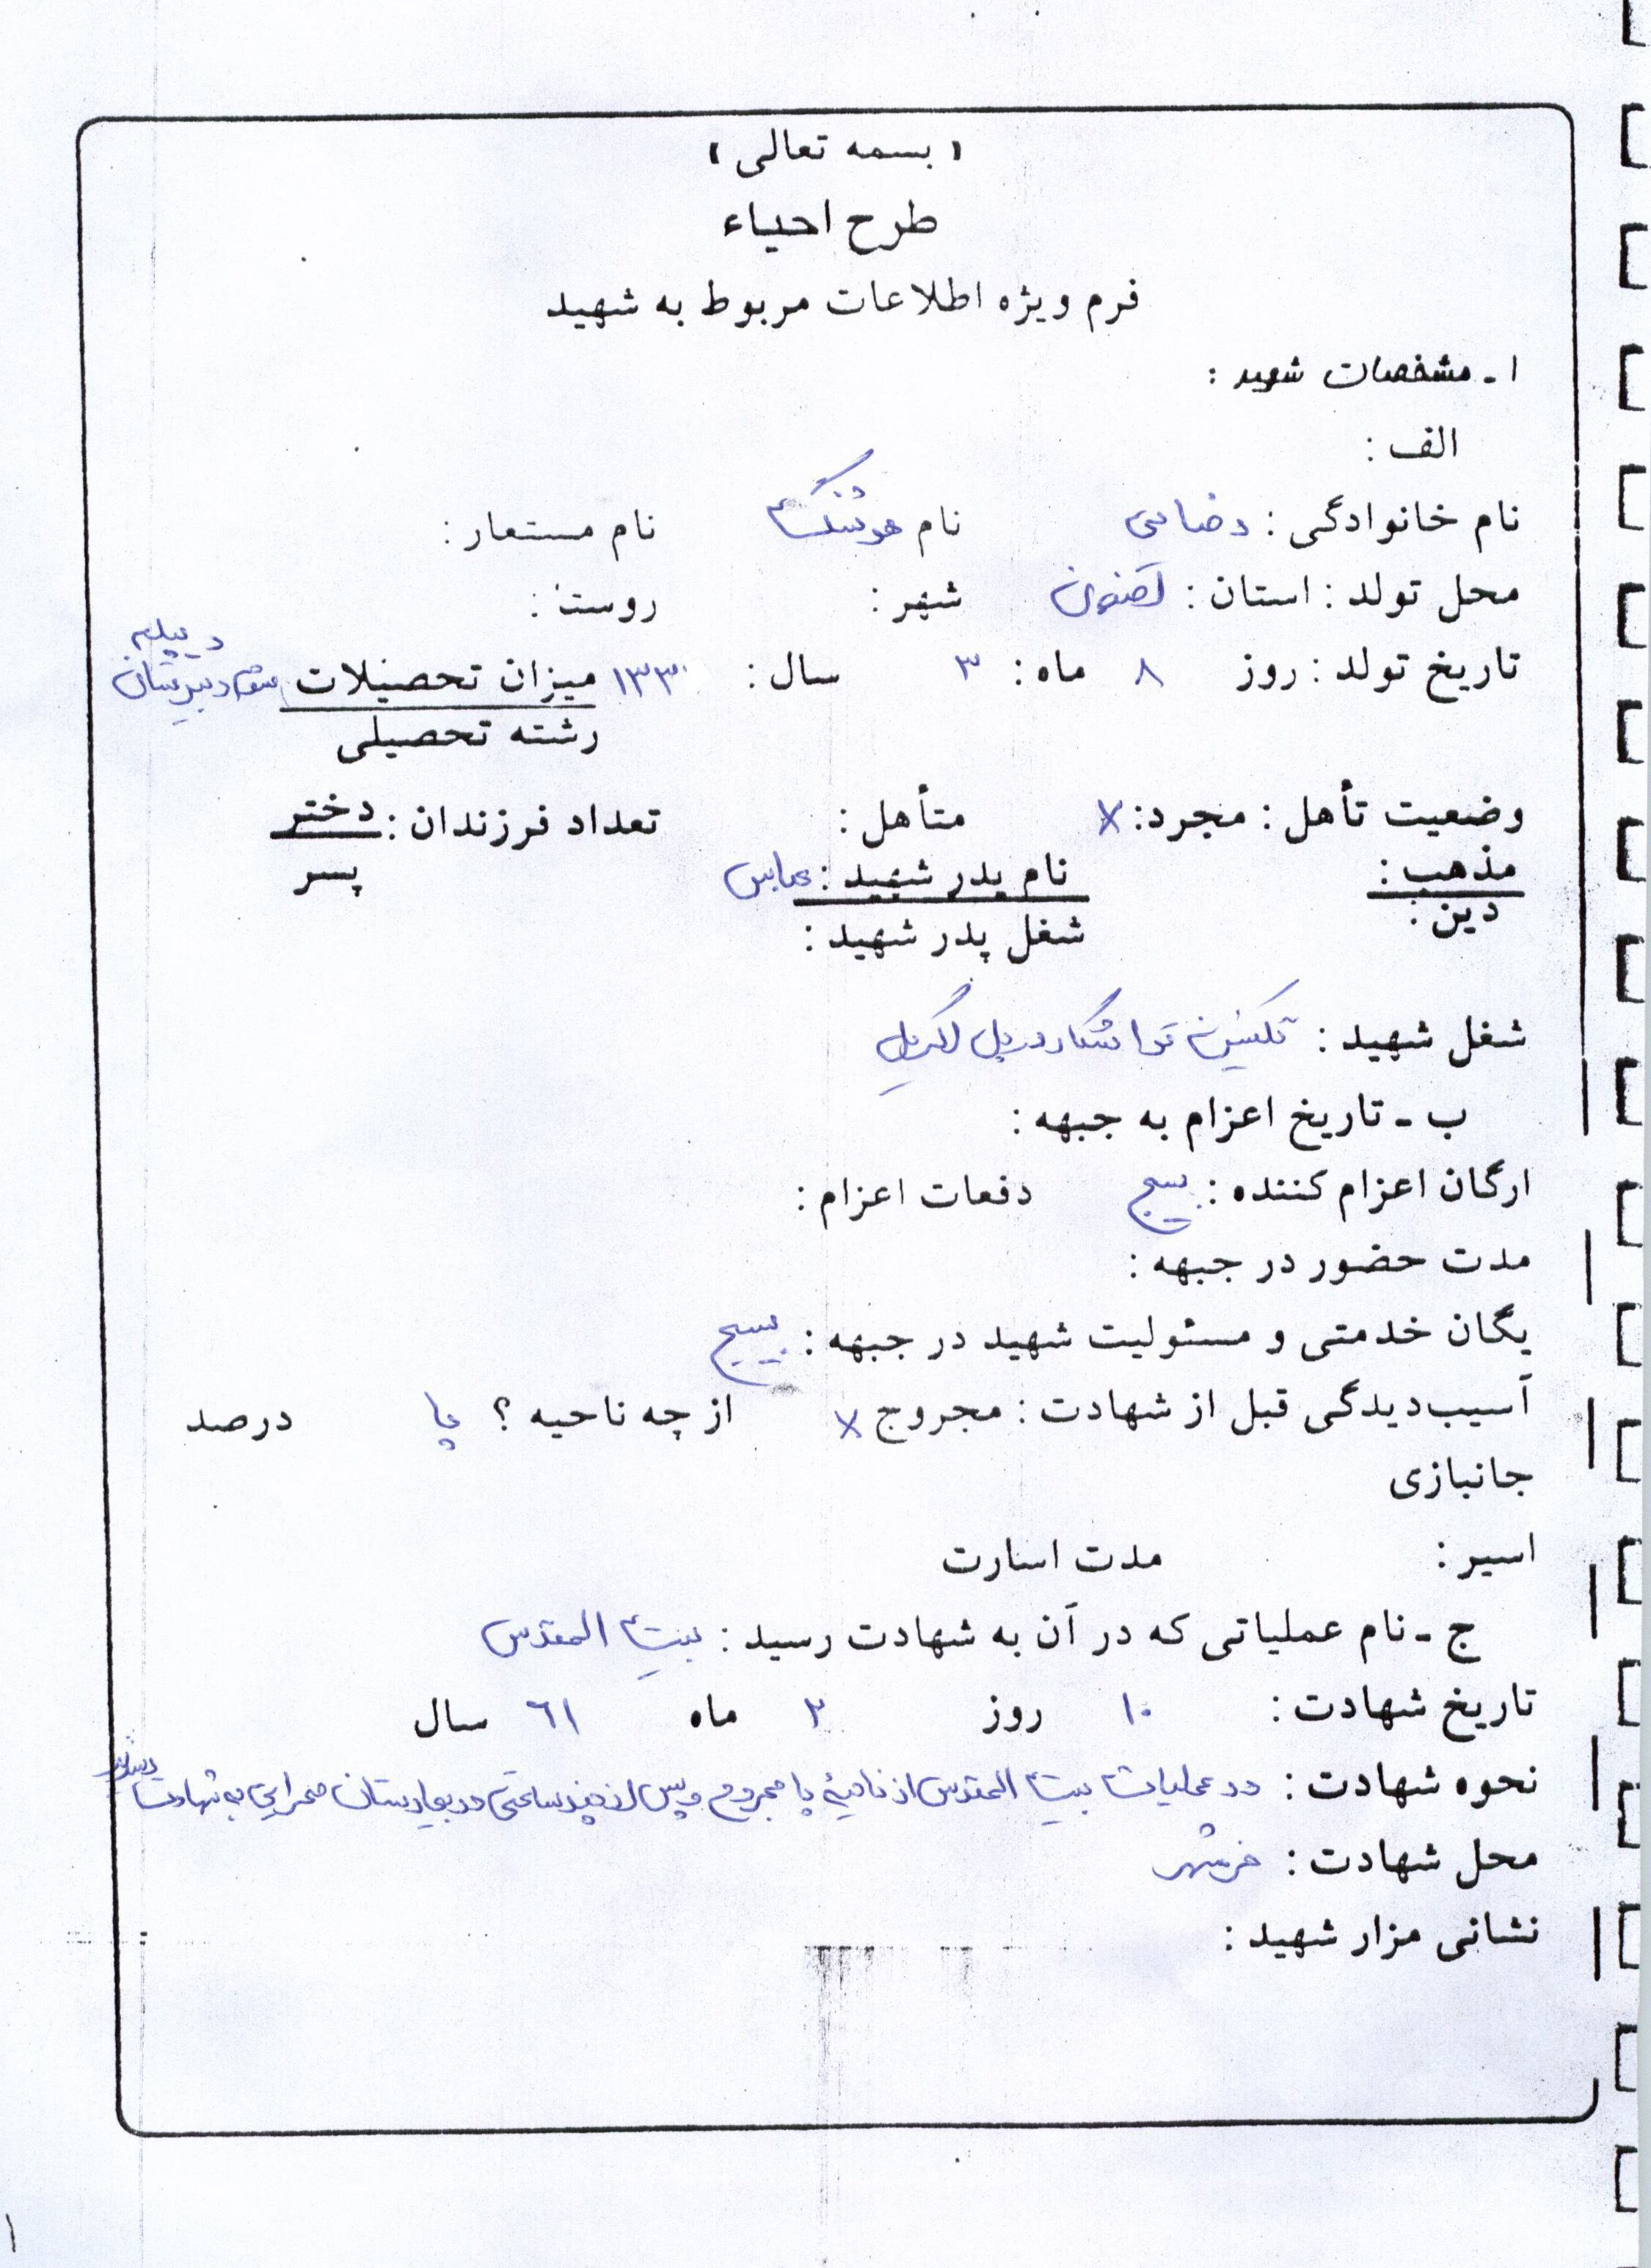 « بسمه تعالی »
طرح احیاء
فرم ویژه اطلاعات مربوط به شهید
۱ - مشخصات شهید :
الف :
نام خانوادگی : رضایی نام هوشنگ نام مستعار :
محل تولد : استان : شهر : روستا :
تاریخ تولد : روز ۸ ماه : ۳ سال : ۱۳۳۰ میزان تحصیلات دیپلم دبیرستان
رشته تحصیلی
وضعیت تأهل : مجرد : x متأهل : تعداد فرزندان : دختر
پسر
مذهب : نام پدر شهید : عباس
دین : شغل پدر شهید :
شغل شهید : تکنسین تراشکار در
ب - تاریخ اعزام به جبهه :
ارگان اعزام کننده : بسیج دفعات اعزام :
مدت حضور در جبهه :
یگان خدمتی و مسئولیت شهید در جبهه : بسیج
آسیب‌دیدگی قبل از شهادت : مجروح x از چه ناحیه ؟ پا درصد
جانبازی
اسیر : مدت اسارت
ج - نام عملیاتی که در آن به شهادت رسید : بیت المقدس
تاریخ شهادت : ۱۰ روز ۲ ماه ۶۱ سال
نحوه شهادت : در عملیات بیت المقدس از ناحیه پا مجروح و پس از چند ساعتی در بیمارستان صحرایی به شهادت رسید
محل شهادت : خرمشهر
نشانی مزار شهید :
۱